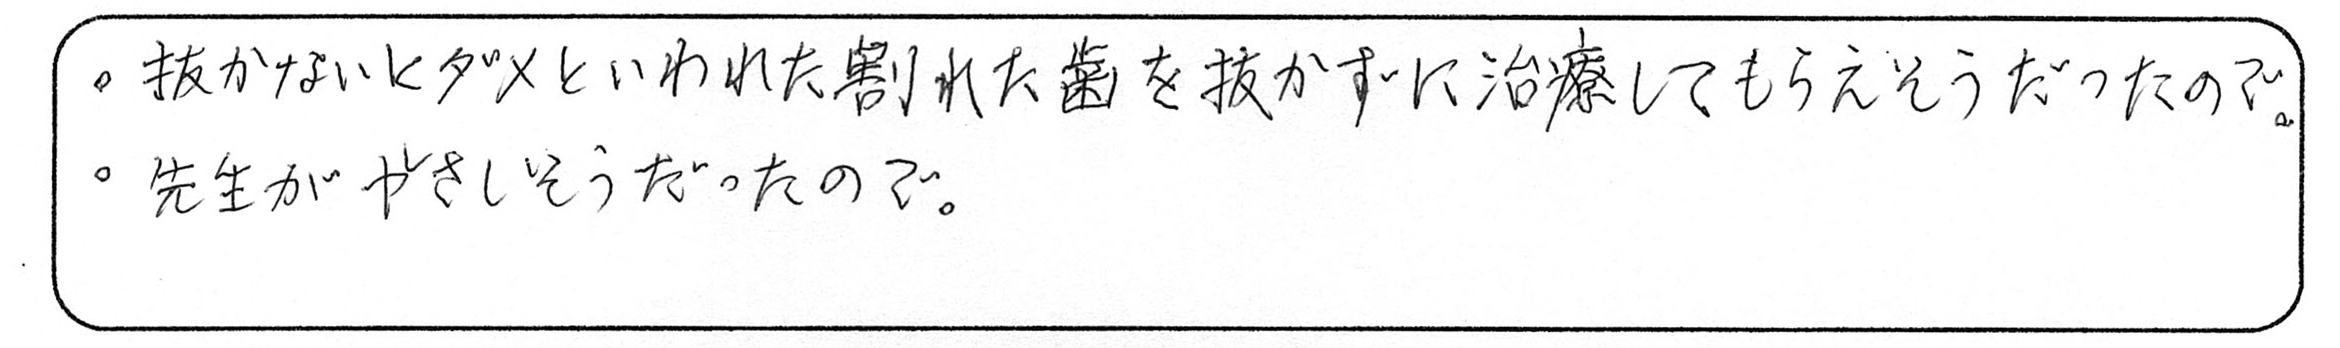 。抜かないとダメといわれた割れた歯を抜かずに治療してもらえそうだったので。
。先生がやさしそうだったので。